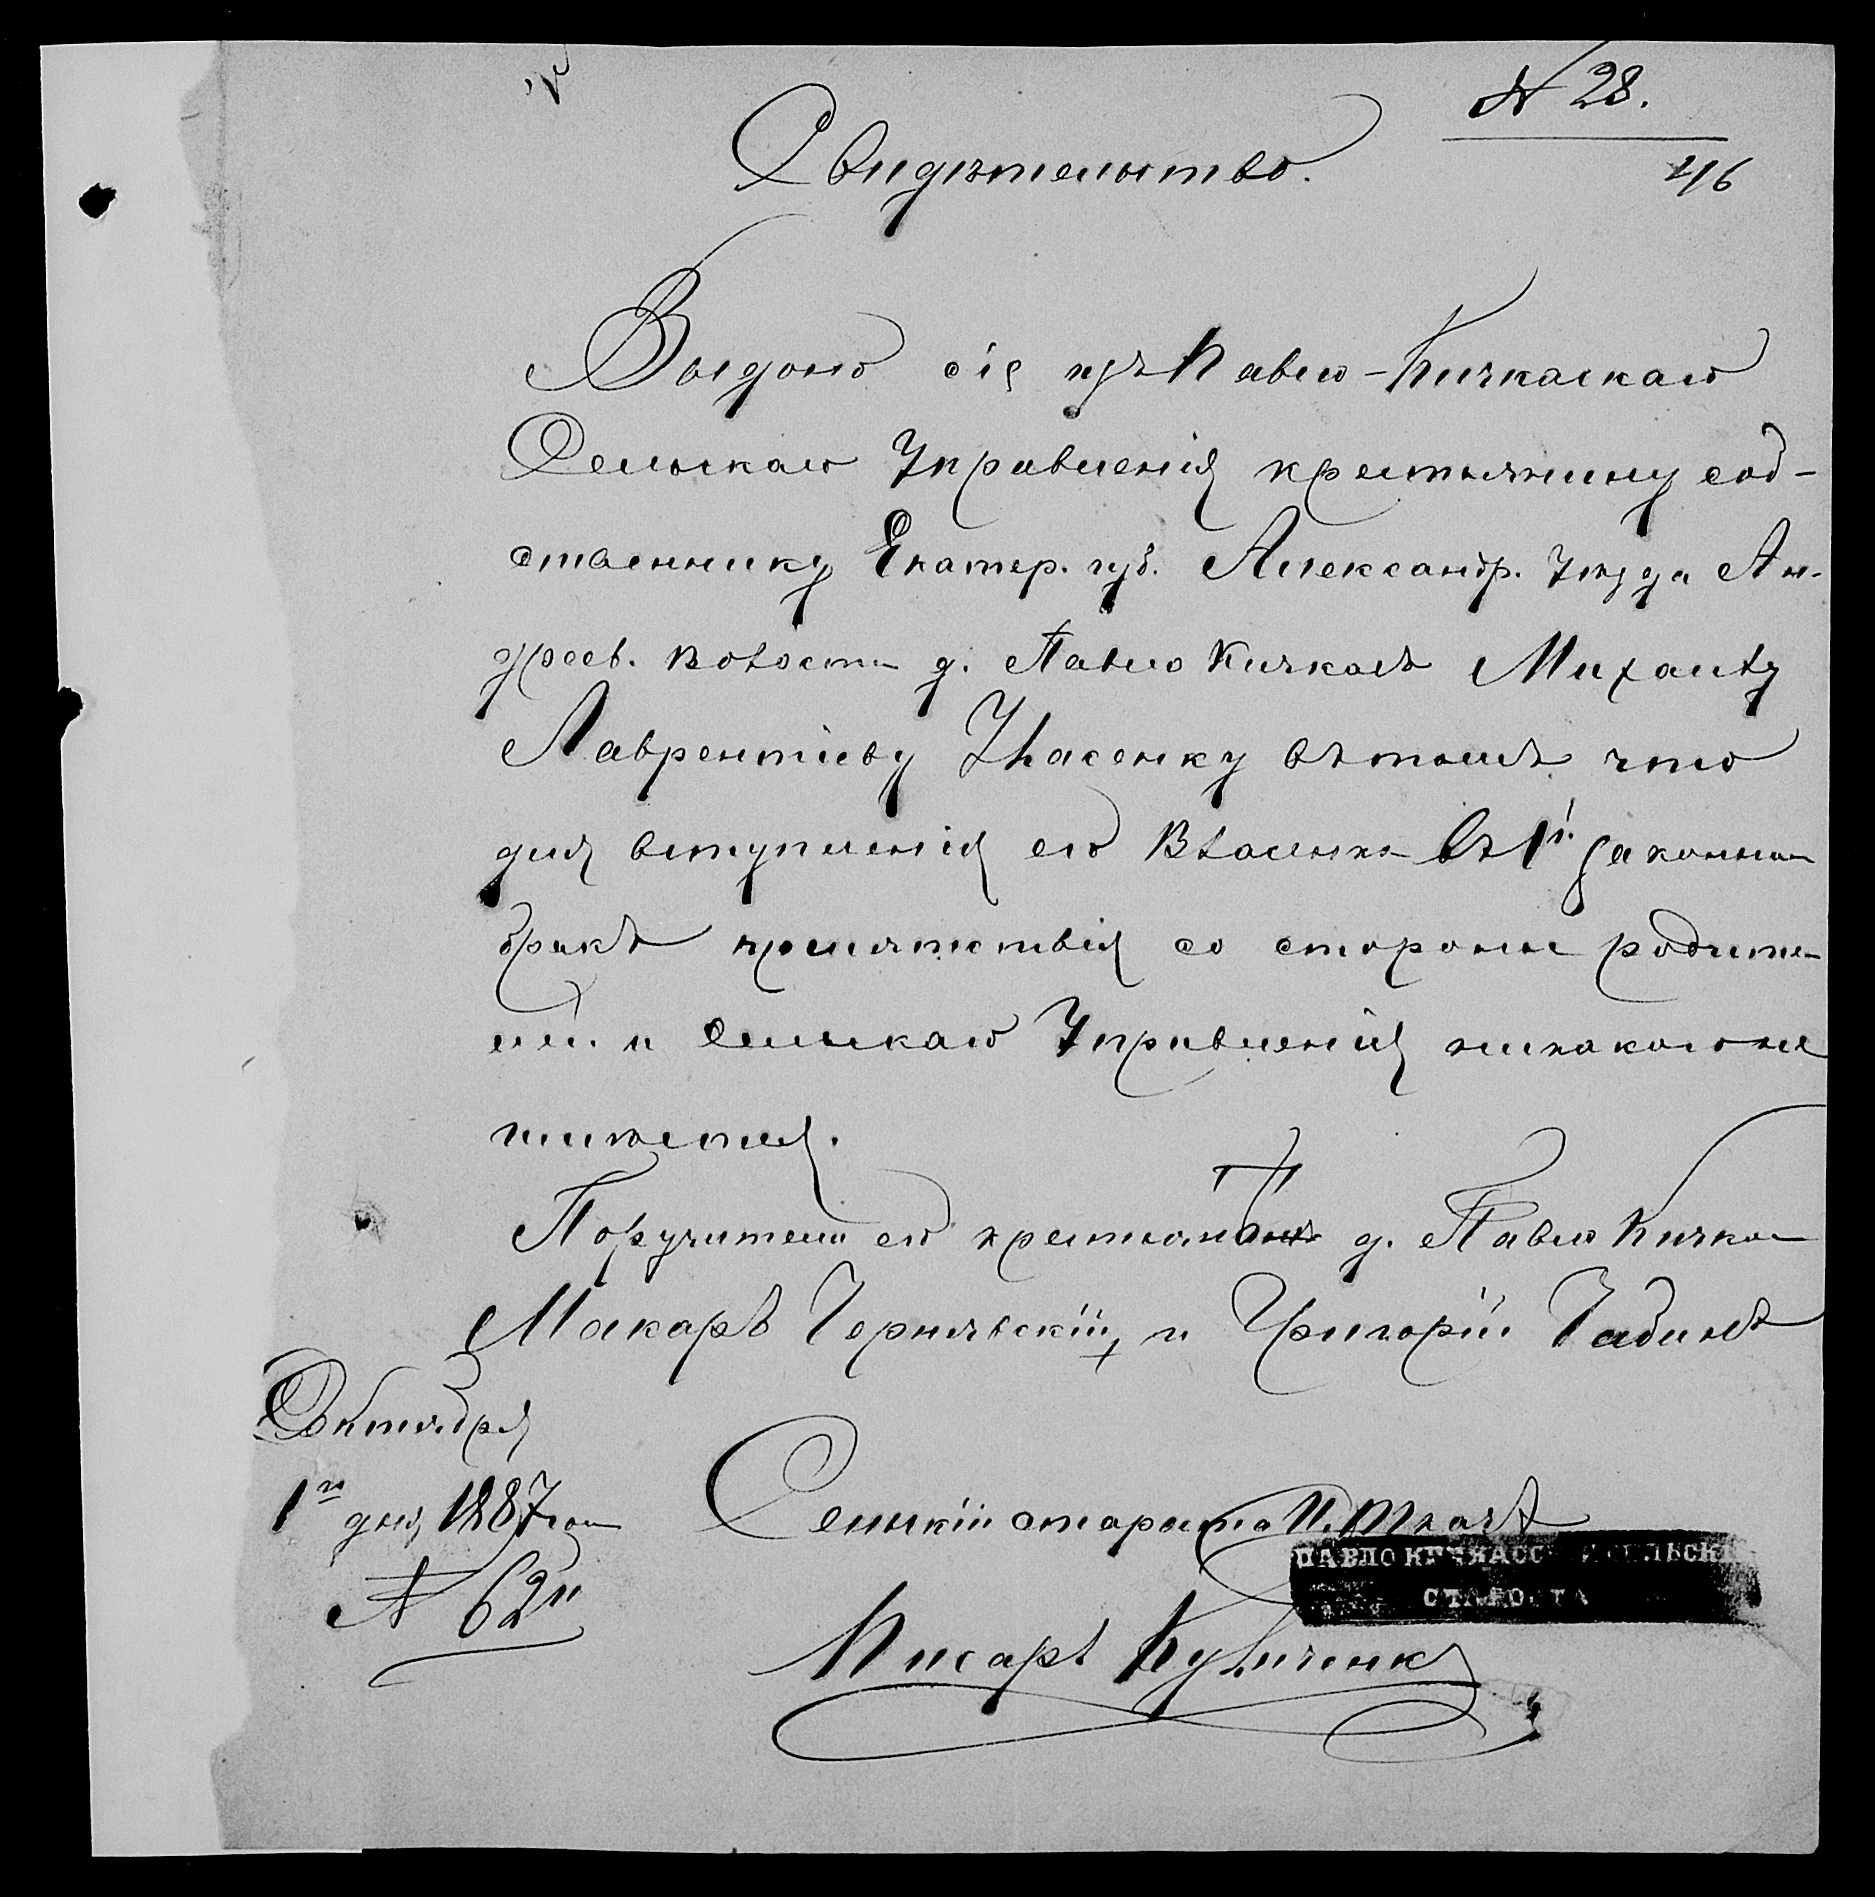 N 28.
46
Свидѣтельство.
Выдано сіе изъ Павло-Кичкаскаго
Сельскаго Управленія крестьянину соб-
ственнику Екатер. губ. Александр. Уѣзда Ан-
дреев. волости д. Павло Кичкасъ Михаилу
Лаврентіеву Власенку въ томъ что
для вступленія его Власенка въ 1й законный
бракъ препятствія со стороны родите-
лей и Сельскаго Управленія никакого не
имѣется.
Поручители его крестьяне д. Павло Кичкас
Макаръ Чернявскій и Григорій Чабинъ
Октября
1го дня 1887 года
N 62
Сельскій староста И. Ткачъ
ПАВЛО КИЧКАСС СЕЛЬСКІ
СТАРОСТА
Писарь